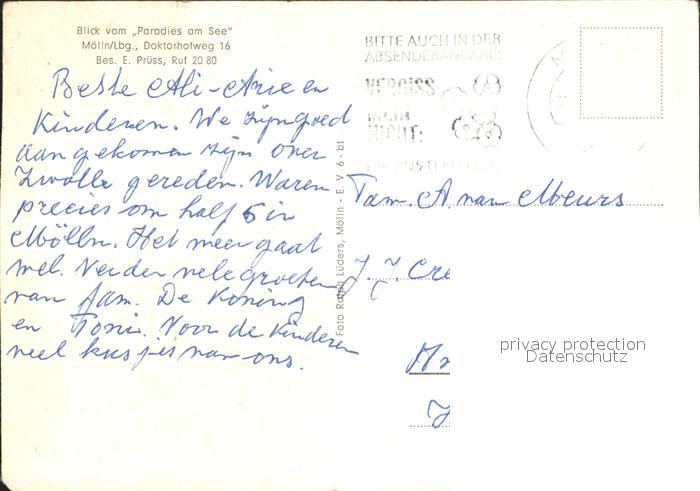 Blick vom „Paradies am See"
Mölln/Lbg., Doktorhofweg 16
Bes. E. Prüss, Ruf 20 80
Beste Ali-Arie en
Kinderen. We zijn goed
aangekomen zijn over
Zwolle gereden. Waren
precies om half 6 in
Mölln. Het weer gaat
wel. Verder vele groeten
van fam. De Koning
en Toni. Voor de Kinderen
veel kusjes van ons.
Foto Ralph Lüders, Mölln - E. V. 6 - bt
BITTE AUCH IN DER
ABSENDERANGABE:
VERGISS
MEIN
NICHT:
DIE POSTLEITZAHL
Fam. A van Meurs
J. J. Cre
privacy protection
Datenschutz